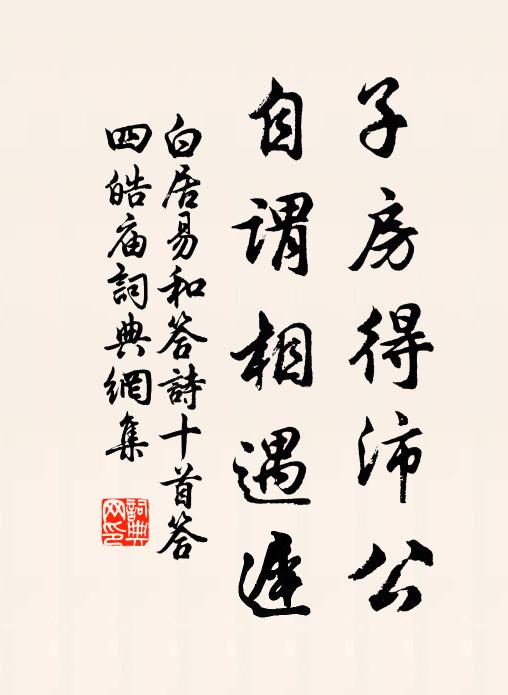 子房得沛公
自謂相遇遲
白居易和答詩十首答
四皓庙詞典網集
詞典
网印